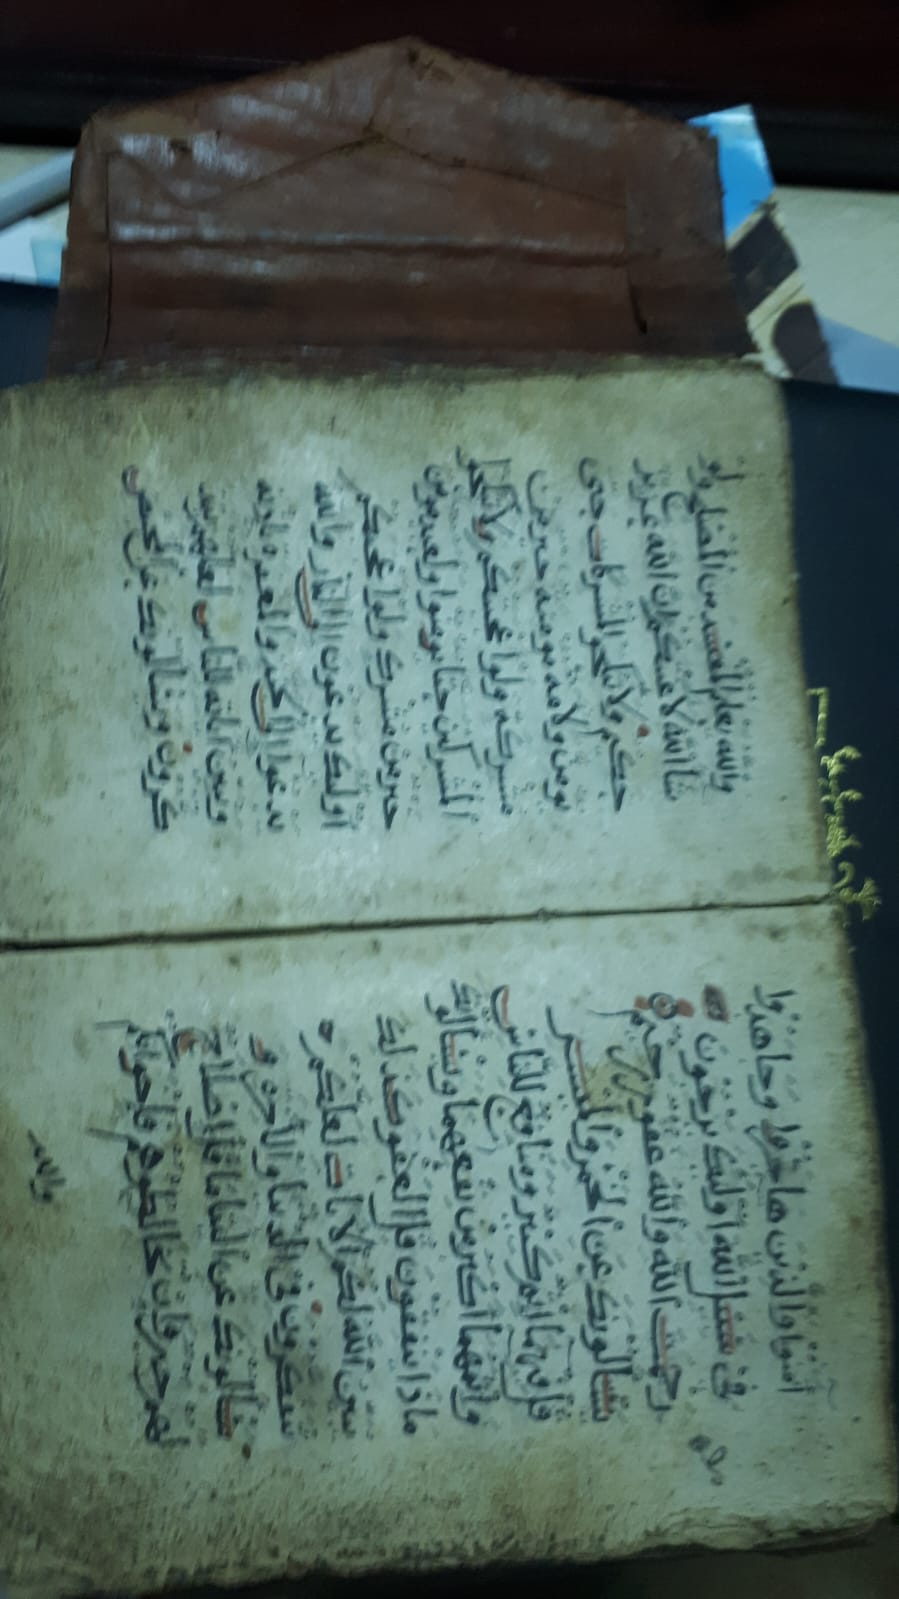 امنوا والذين هاجروا وجاهدوا
في سبيل الله اوليك يرجون
رحمت الله والله غفور رحيم
يسالونك عن الخمر والميسر
قل فيهما اثم كبير ومنافع للناس
واثمهما اكبر من نفعهما ويسالونك
ماذا ينفقون قل العفو كذلك
يبين الله لكم الايات لعلكم
تتفكرون في الدنيا والاخره و
يسالونك عن اليتاما قل اصلاح
لهم خير وان تخالطوهم فاخوانكم
والله
والله يعلم المفسد من المصلح ولو
شا الله لاعنتكم ان الله عزيز
حكيم ولا تنكحو المشركات حتى
يومن ولامه مومنه خير من
مشركه ولو اعجبتكم ولا تنكحوا
المشركين حتا يومنوا ولعبد مومن
خير من مشرك ولو اعجبكم
اوليك يدعون الى النار والله
يدعوا الى الجنه والمغفره باذنه
ويبين اياته للناس لعلهم يتذ
كرون ويسالونك عن المحيض